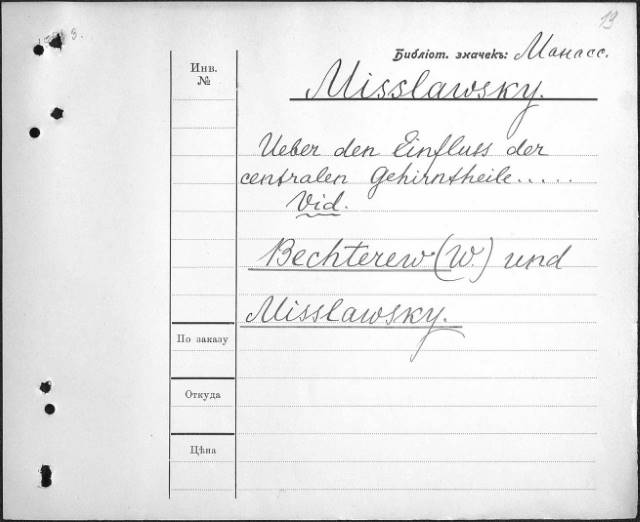 19
Библіот. значекъ: Манасс.
Инв.
№
Misslawsky.
Ueber den Einfluss der
centralen Gehirntheile.....
Vid.
Bechterew (W.) und
Misslawsky.
По заказу
Откуда
Цѣна